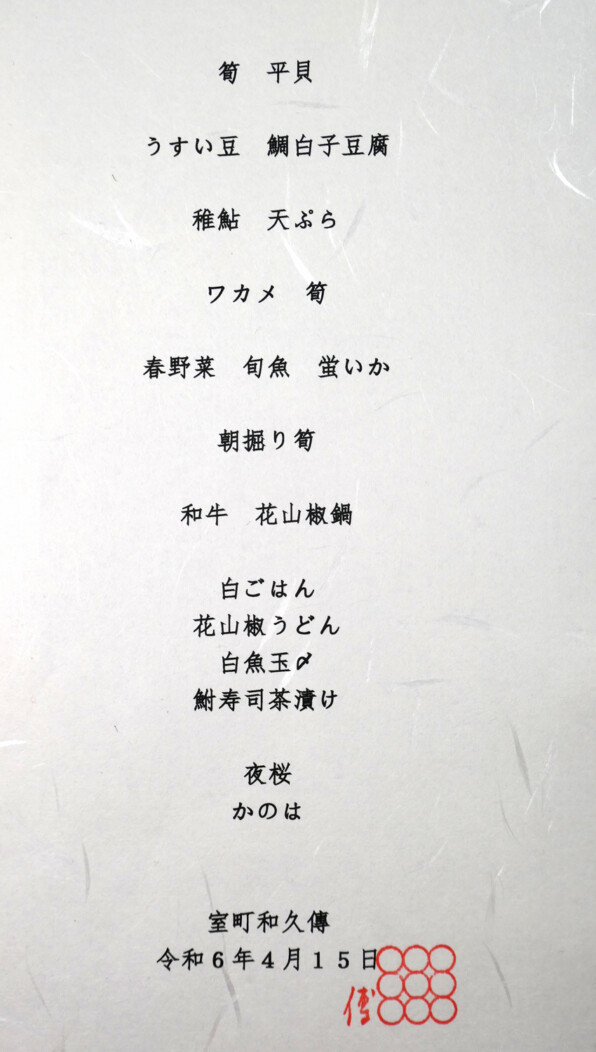 筍　平貝
うすい豆　鯛白子豆腐
稚鮎　天ぷら
ワカメ　筍
春野菜　旬魚　蛍いか
朝掘り筍
和牛　花山椒鍋
白ごはん
花山椒うどん
白魚玉〆
鮒寿司茶漬け
夜桜
かのは
室町和久傳
令和６年４月１５日
傳